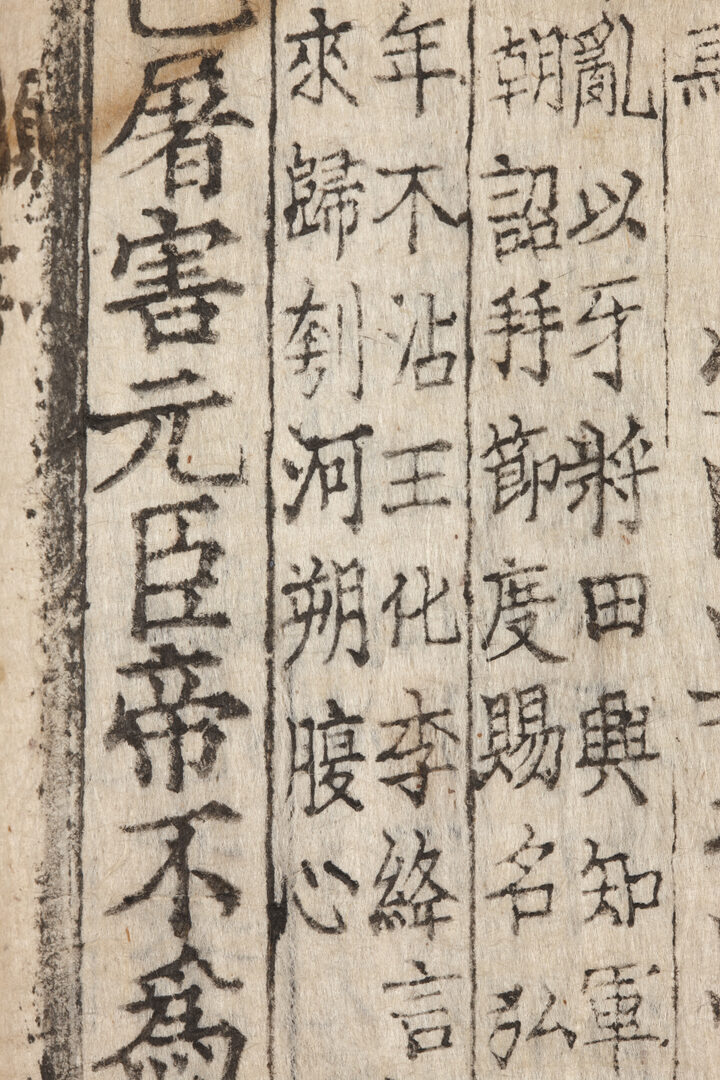 亂以牙將田興知軍
朝詔拜節度賜名弘
年不沾王化李絳言
來歸刳河朔腹心
屠害元臣帝不爲